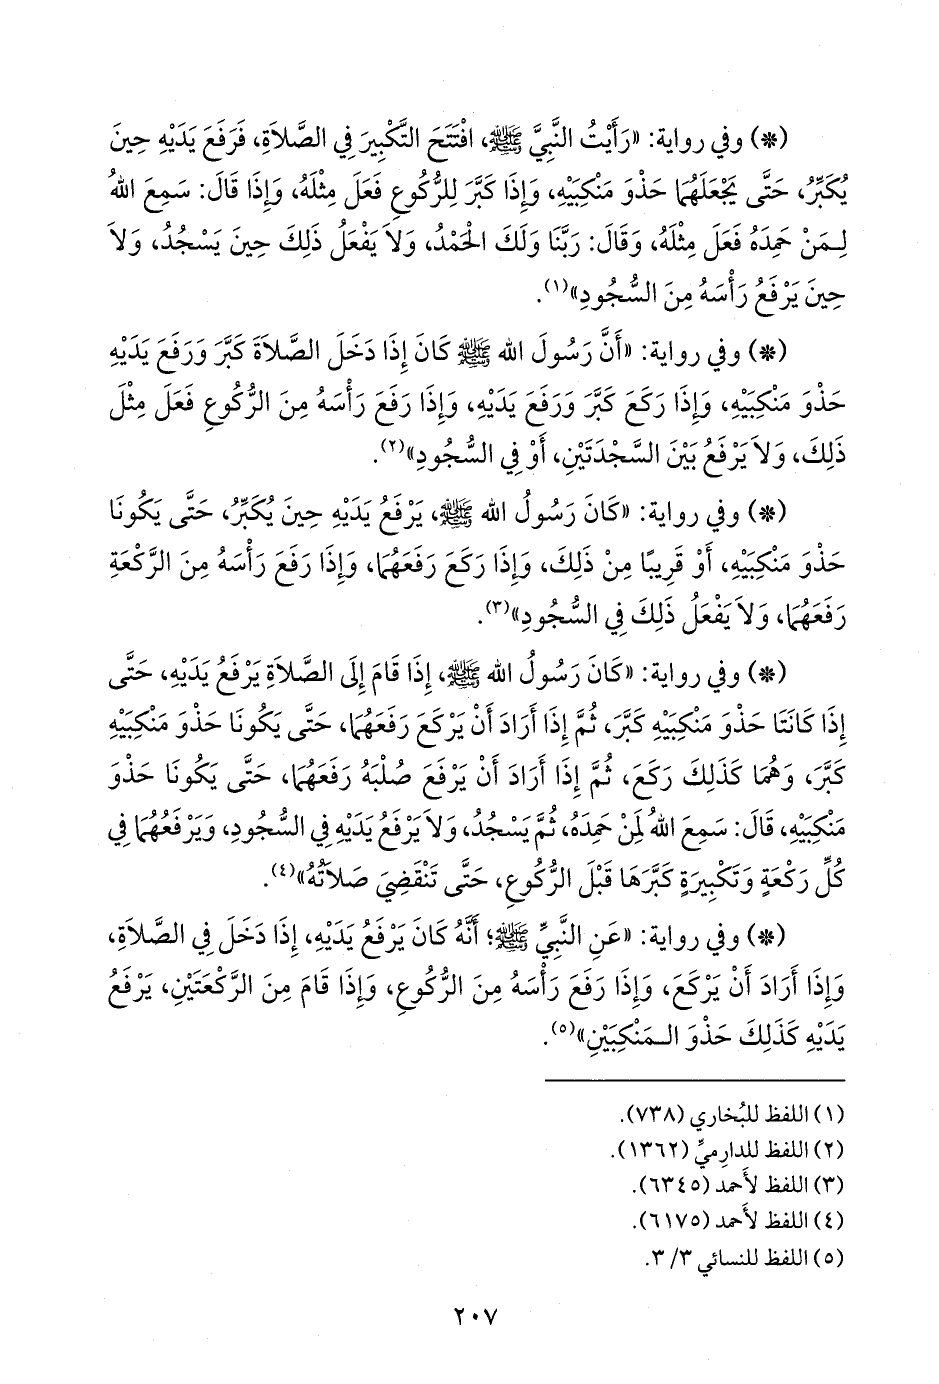 (*) وفي رواية: «رَأَيْتُ النَّبِيَّ ﷺ، افْتَتَحَ التَّكْبِيرَ فِي الصَّلاَةِ، فَرَفَعَ يَدَيْهِ حِينَ
يُكَبِّرُ، حَتَّى يَجْعَلَهُمَا حَذْوَ مَنْكِبَيْهِ، وَإِذَا كَبَّرَ لِلرُّكُوعِ فَعَلَ مِثْلَهُ، وَإِذَا قَالَ: سَمِعَ اللهُ
لِـمَنْ حَمِدَهُ فَعَلَ مِثْلَهُ، وَقَالَ: رَبَّنَا وَلَكَ الْحَمْدُ، وَلاَ يَفْعَلُ ذَلِكَ حِينَ يَسْجُدُ، وَلاَ
حِينَ يَرْفَعُ رَأْسَهُ مِنَ السُّجُودِ»(١).
(*) وفي رواية: «أَنَّ رَسُولَ الله ﷺ كَانَ إِذَا دَخَلَ الصَّلاَةَ كَبَّرَ وَرَفَعَ يَدَيْهِ
حَذْوَ مَنْكِبَيْهِ، وَإِذَا رَكَعَ كَبَّرَ وَرَفَعَ يَدَيْهِ، وَإِذَا رَفَعَ رَأْسَهُ مِنَ الرُّكُوعِ فَعَلَ مِثْلَ
ذَلِكَ، وَلاَ يَرْفَعُ بَيْنَ السَّجْدَتَيْنِ، أَوْ فِي السُّجُودِ»(٢).
(*) وفي رواية: «كَانَ رَسُولُ الله ﷺ، يَرْفَعُ يَدَيْهِ حِينَ يُكَبِّرُ، حَتَّى يَكُونَا
حَذْوَ مَنْكِبَيْهِ، أَوْ قَرِيبًا مِنْ ذَلِكَ، وَإِذَا رَكَعَ رَفَعَهُمَا، وَإِذَا رَفَعَ رَأْسَهُ مِنَ الرَّكْعَةِ
رَفَعَهُمَا، وَلاَ يَفْعَلُ ذَلِكَ فِي السُّجُودِ»(٣).
(*) وفي رواية: «كَانَ رَسُولُ الله ﷺ، إِذَا قَامَ إِلَى الصَّلاَةِ يَرْفَعُ يَدَيْهِ، حَتَّى
إِذَا كَانَتَا حَذْوَ مَنْكِبَيْهِ كَبَّرَ، ثُمَّ إِذَا أَرَادَ أَنْ يَرْكَعَ رَفَعَهُمَا، حَتَّى يَكُونَا حَذْوَ مَنْكِبَيْهِ
كَبَّرَ، وَهُمَا كَذَلِكَ رَكَعَ، ثُمَّ إِذَا أَرَادَ أَنْ يَرْفَعَ صُلْبَهُ رَفَعَهُمَا، حَتَّى يَكُونَا حَذْوَ
مَنْكِبَيْهِ، قَالَ: سَمِعَ اللهُ لِمَنْ حَمِدَهُ، ثُمَّ يَسْجُدُ، وَلاَ يَرْفَعُ يَدَيْهِ فِي السُّجُودِ، وَيَرْفَعُهُمَا فِي
كُلِّ رَكْعَةٍ وَتَكْبِيرَةٍ كَبَّرَهَا قَبْلَ الرُّكُوعِ، حَتَّى تَنْقَضِيَ صَلاَتُهُ»(٤).
(*) وفي رواية: «عَنِ النَّبِيِّ ﷺ؛ أَنَّهُ كَانَ يَرْفَعُ يَدَيْهِ، إِذَا دَخَلَ فِي الصَّلاَةِ،
وَإِذَا أَرَادَ أَنْ يَرْكَعَ، وَإِذَا رَفَعَ رَأْسَهُ مِنَ الرُّكُوعِ، وَإِذَا قَامَ مِنَ الرَّكْعَتَيْنِ، يَرْفَعُ
يَدَيْهِ كَذَلِكَ حَذْوَ الـمَنْكِبَيْنِ»(٥).
(١) اللفظ للبُخاري (٧٣٨).
(٢) اللفظ للدارِميِّ (١٣٦٢).
(٣) اللفظ لأَحمد (٦٣٤٥).
(٤) اللفظ لأَحمد (٦١٧٥).
(٥) اللفظ للنسائي ٣/ ٣.
٢٠٧